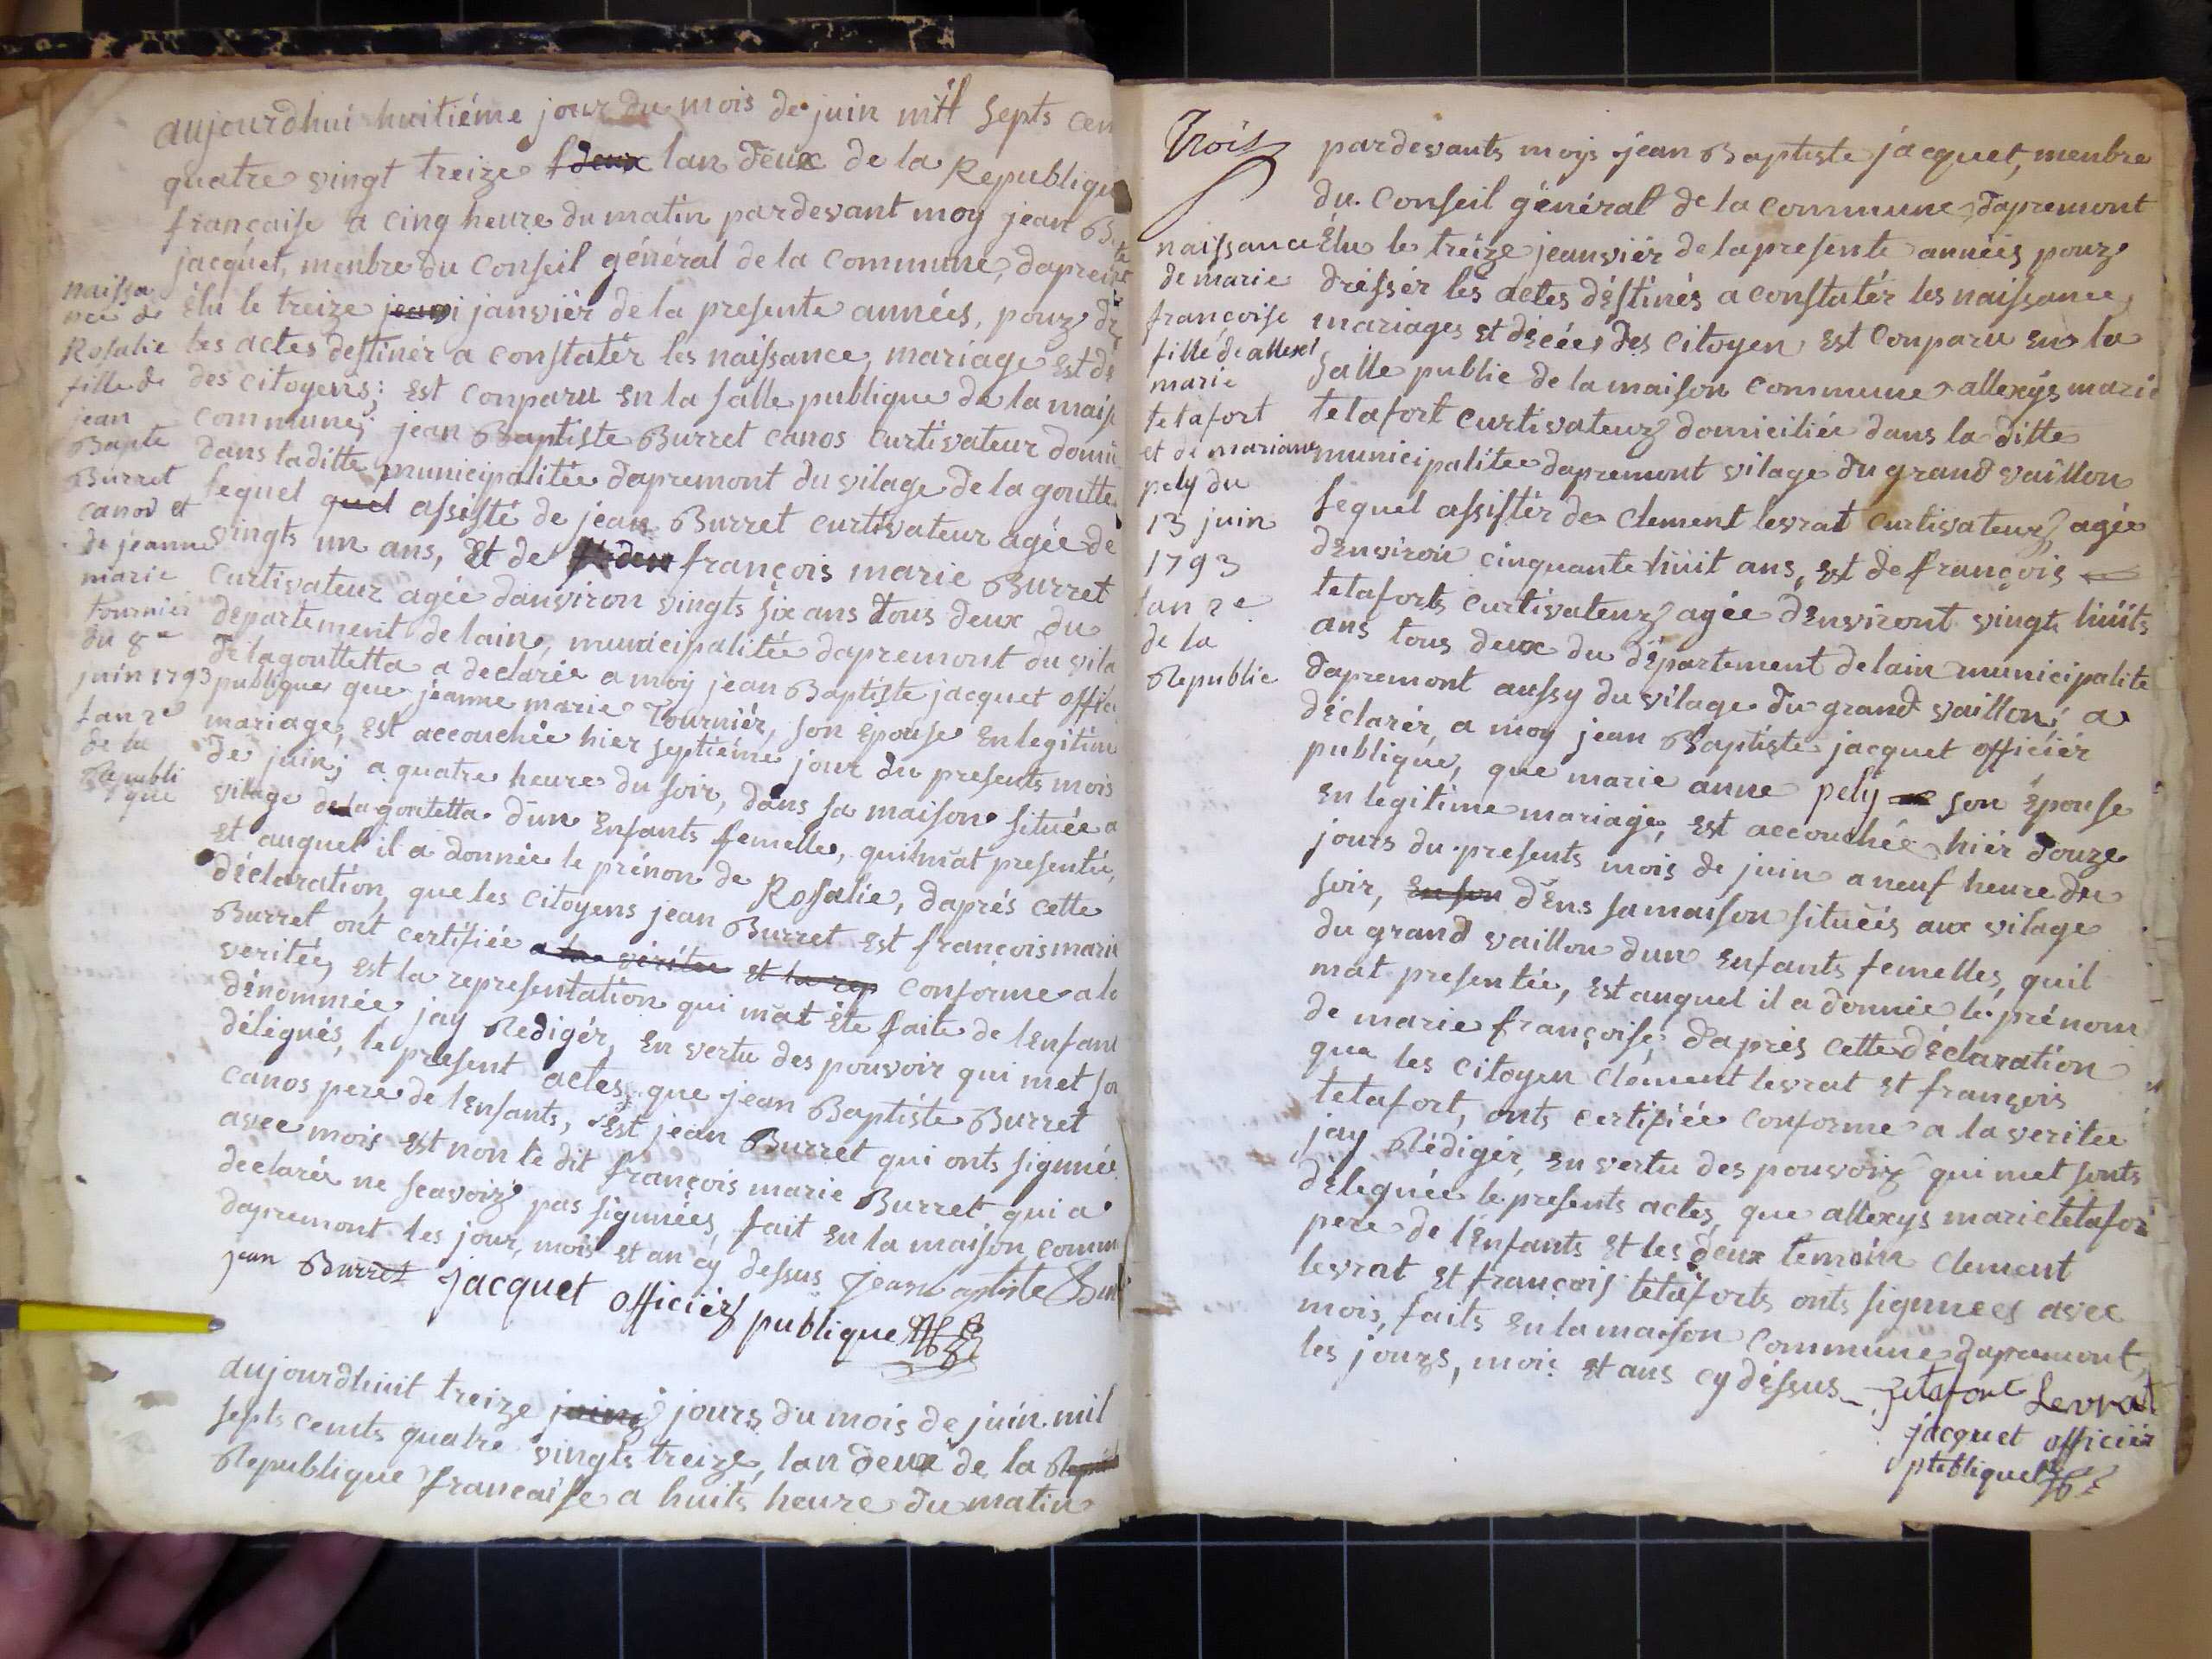 aujourdhui huitiéme jour du mois de juin mil septs cen
quatre vingt treize deux lan deux de la Republique
françaife a cinq heure du matin pardevant moy jean B
jacquet, menbre du Confeil général de la Commune, dapre
élu le treize janvier de la presente années, pour
les actes destinér a constatér les naissance, mariage Est de
des citoyens; est Conparu En la salle publique de la mais
Commune; jean Baptiste Burret canos Curtivateur domi
dans laditte municipalitée dapremont du vilage de la goutte
lequel quel assisté de jean Burret curtivateur agée de
vingts un ans, Et de françois marie Burret
Curtivateur agée danviron vingts six ans tous deux du
departement de lain, municipalitée dapremont du vila
de lagouttetta a declarée a moy jean Baptiste jacquet offic
publique que jeanne marie Tourniér, son épouse En legitim
mariage, est accouchée hier septiéme jour du presents mois
de juin; a quatre heure du soir, dans sa maison située a
vilage de la goutetta dun Enfants femelle, quilmat presentée,
Et auquel il a donnée le prénon de Rosalie, daprés cette
déclaration, que les Citoyens jean Burret Est françois marie
Burret ont certifiée a la véritée et la rep Conforme a la
veritée, est la representation qui mat Eté faite de lEnfant
dénommée jay Redigér, En vertu des pouvoir qui met so
délégués, le present actes, que jean Baptiste Burret
canos pere de lEnfants, Est jean Burret qui onts signnée
avec mois Est non le dit françois marie Burret qui a
declarée ne scavoir pas signnées, fait En la maison comm
dapremont les jour, mois et an cy dessus jean aptiste Bur
jean Burret jacquet officiér publique
naissa
nce de
Rosalie
fille de
jean
Bapte
Burret
canos et
de jeanne
marie
tournier
du 8e
juin 1793
lan 2e
de la
Republi
que
aujourdhuit treize juin jours du mois de juin mil
septs cents quatre vingts treize, lan deux de la Repub
Republique francaise a huits heure du matin
Trois
naissance
de marie
françoise
fille de allexi
marie
tetafort
et de mariane
pely du
13 juin
1793
lan 2e
de la
Republic
pardevants moys jean Baptiste jacquet, menbre
du Conseil général de la commune, dapremont
Elu le treize jeanviér de la presente années pour
dréssér les actes déstinés a constatér les naissance,
mariages Et décées des Citoyen, Est Conparu En la
salle public de la maison Commune allexys marie
tetafort curtivateur domiciliée dans la ditte
municipalitée dapremont vilage du grand vaillon
lequel assistér de Clement levrat Curtivateur agée
dEnviron cinquante huit ans, Est de françois
tetaforts curtivateur agée dEnviront vingt huits
ans tous deux du département de lain municipalité
dapremont aussy du vilage du grand vaillon, a
déclarér, a moy jean Baptiste jacquet officiér
publique, que marie anne pely son épouse
En legitime mariage, Est accouchée hiér douze
jours du presents mois de juin a neuf heure du
soir, En son dEns sa maison situéés aux vilage
du grand vaillon dun Enfants femelles, quil
mat presentée, Est auquel il a donnée le prénom
de marie françoise, daprés cette dEclaration
que les citoyen Clément levrat Et françois
tetafort, onts certifiée Conforme a la veritee
jay Rédigér, En vertu des pouvoir qui met sonts
deleguée le presents actes, que allexys marie tetafor
pere de lEnfants Et les deux temoin Clement
levrat Et françois tetaforts onts signnees avec
mois, faits En la maison Commune dapremont,
les jours, mois Et ans cy déssus tetafort Levrat
jacquet officiér
publique